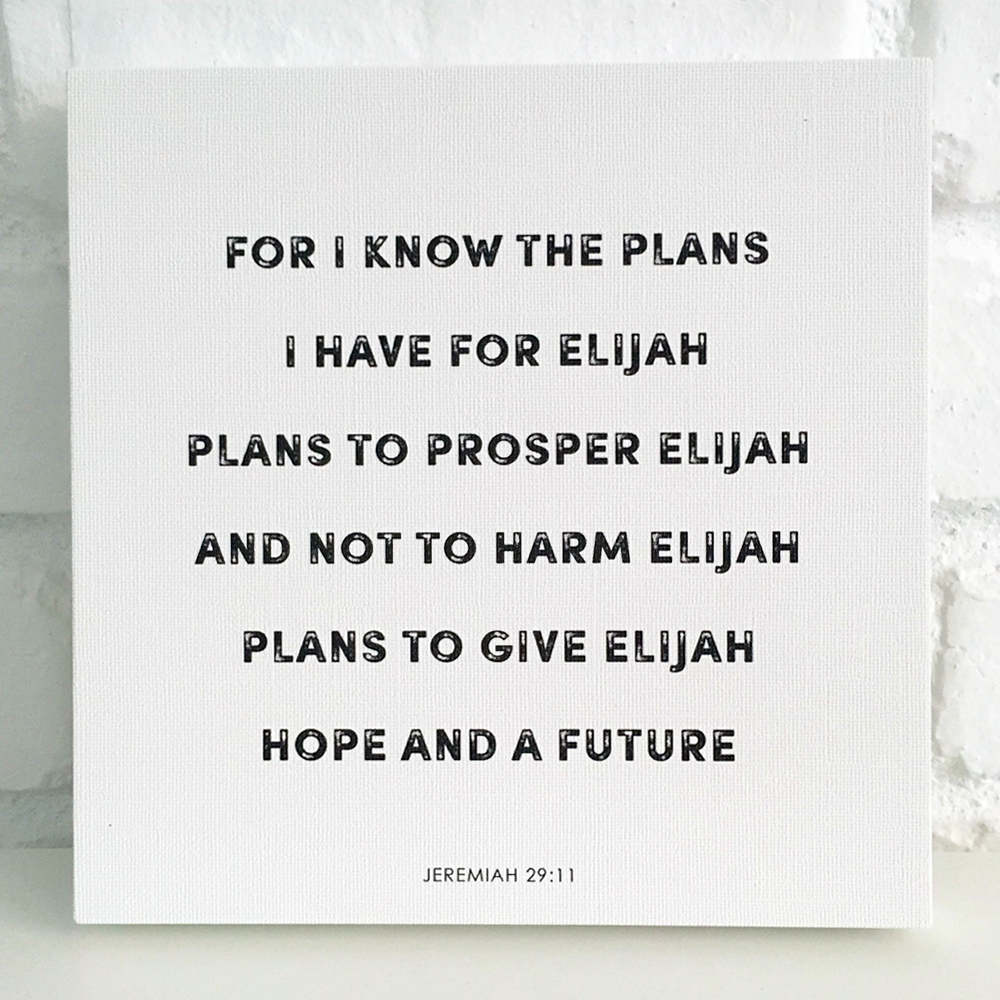 FOR I KNOW THE PLANS
I HAVE FOR ELIJAH
PLANS TO PROSPER ELIJAH
AND NOT TO HARM ELIJAH
PLANS TO GIVE ELIJAH
HOPE AND A FUTURE
JEREMIAH 29:11